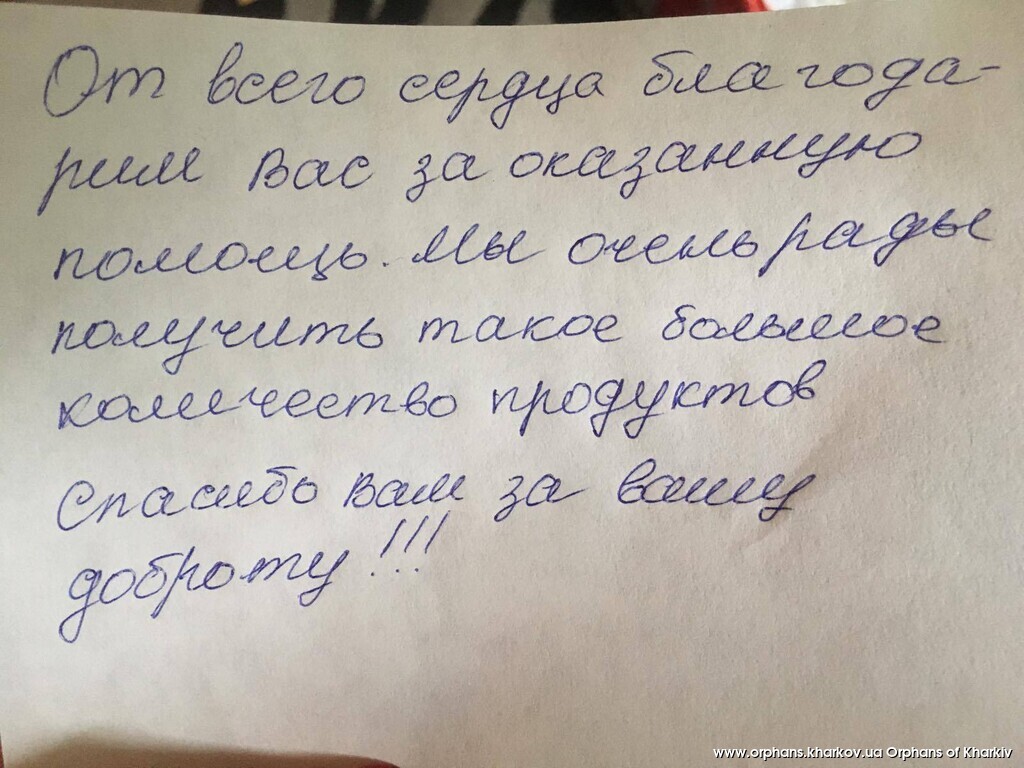 От всего сердца благода-
рим Вас за оказанную
помощь. Мы очень рады
получить такое большое
количество продуктов
Спасибо Вам за вашу
доброту!!!
www.orphans.kharkov.ua Orphans of Kharkiv